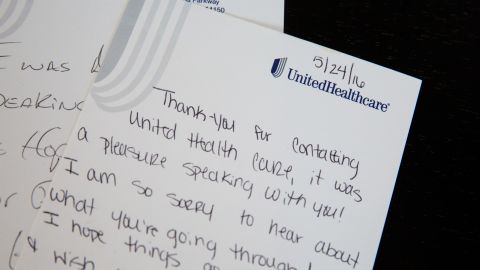 Parkway
I was
PEAKING
5/24/16
UnitedHealthcare®
Thank-you for contacting
United Health Care, it was
a pleasure speaking with you!
I am so sorry to hear about
what you're going through!
I hope things
& wish